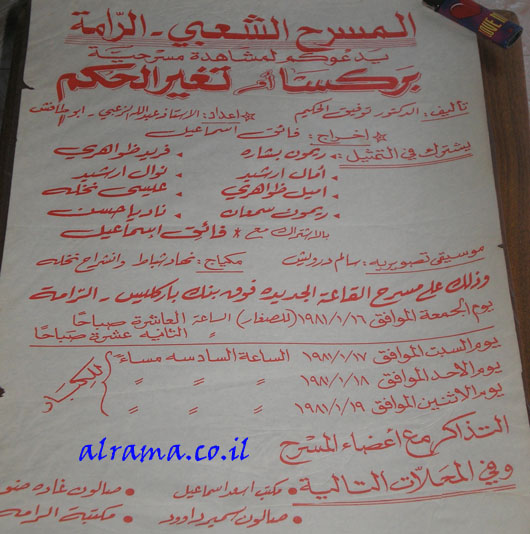 المسرح الشعبي - الرّامة
يدعوكم لمشاهدة مسرحيّة
بركسا أم تغير الحكم
تأليف: الدكتور توفيق الحكيم * اعداد: الاستاذ عبدالله الزعبي - ابو طافش
* إخراج: فائق اسماعيل
يشترك في التمثيل: • ريمون بشاره • فريد ظواهري
• آمال ارشيد • نوال ارشيد
• اميل ظواهري • عيسى نخله
• ريمون سمعان • ناديا حسن
بالاشتراك مع * فائق إسماعيل
موسيقى تصويريه: سالم درويش مكياج: نهاد شباط وانشراح نخله
وذلك على مسرح القاعة الجديده فوق بنك باركليس - الرّامة
يوم الجمعة الموافق ١٩٨١/١/١٦ (للصغار) الساعة العاشرة صباحًا
" الثانيه عشرة صباحًا
يوم السبت الموافق ١٩٨١/١/١٧ الساعة السادسه مساءً
يوم الاحد الموافق ١٩٨١/١/١٨ " " "
يوم الاثنين الموافق ١٩٨١/١/١٩ " " "
للكبار
التذاكر مع أعضاء المسرح
وفي المحلات التالية
• مكتب اسعد اسماعيل • صالون غاده
• صالون سمير داوود • مكتبة الرامه
alrama.co.il